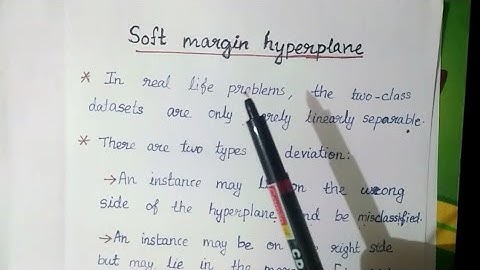 Soft margin hyperplane
* In real life problems, the two-class
datasets are only rarely linearly separable.
* There are two types deviation:
→ An instance may on the wrong
side of the hyperplane and be misclassified.
→ An instance may be on the right side
but may lie in the